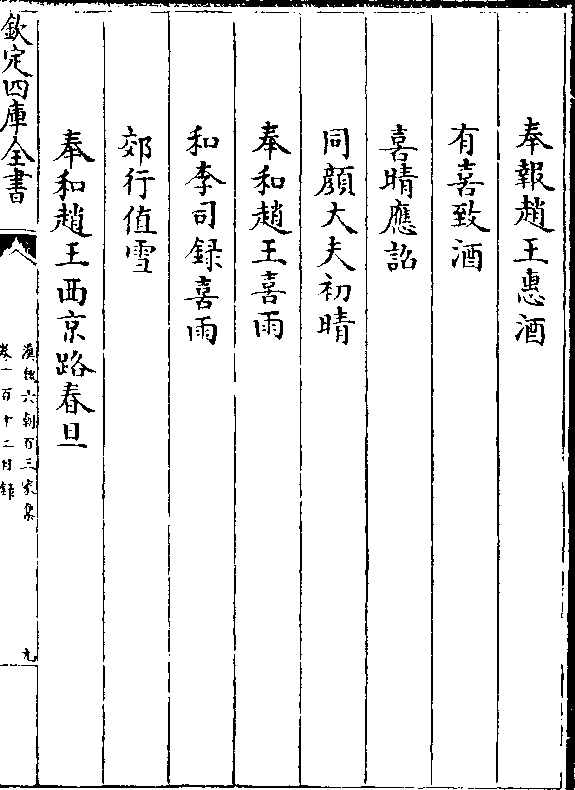 奉報趙王惠酒
有喜致酒
喜晴應詔
同顔大夫初晴
奉和趙王喜雨
和李司録喜雨
郊行值雪
奉和趙王西京路春旦
欽定四庫全書
漢魏六朝百三家集
卷一百十二目録
九